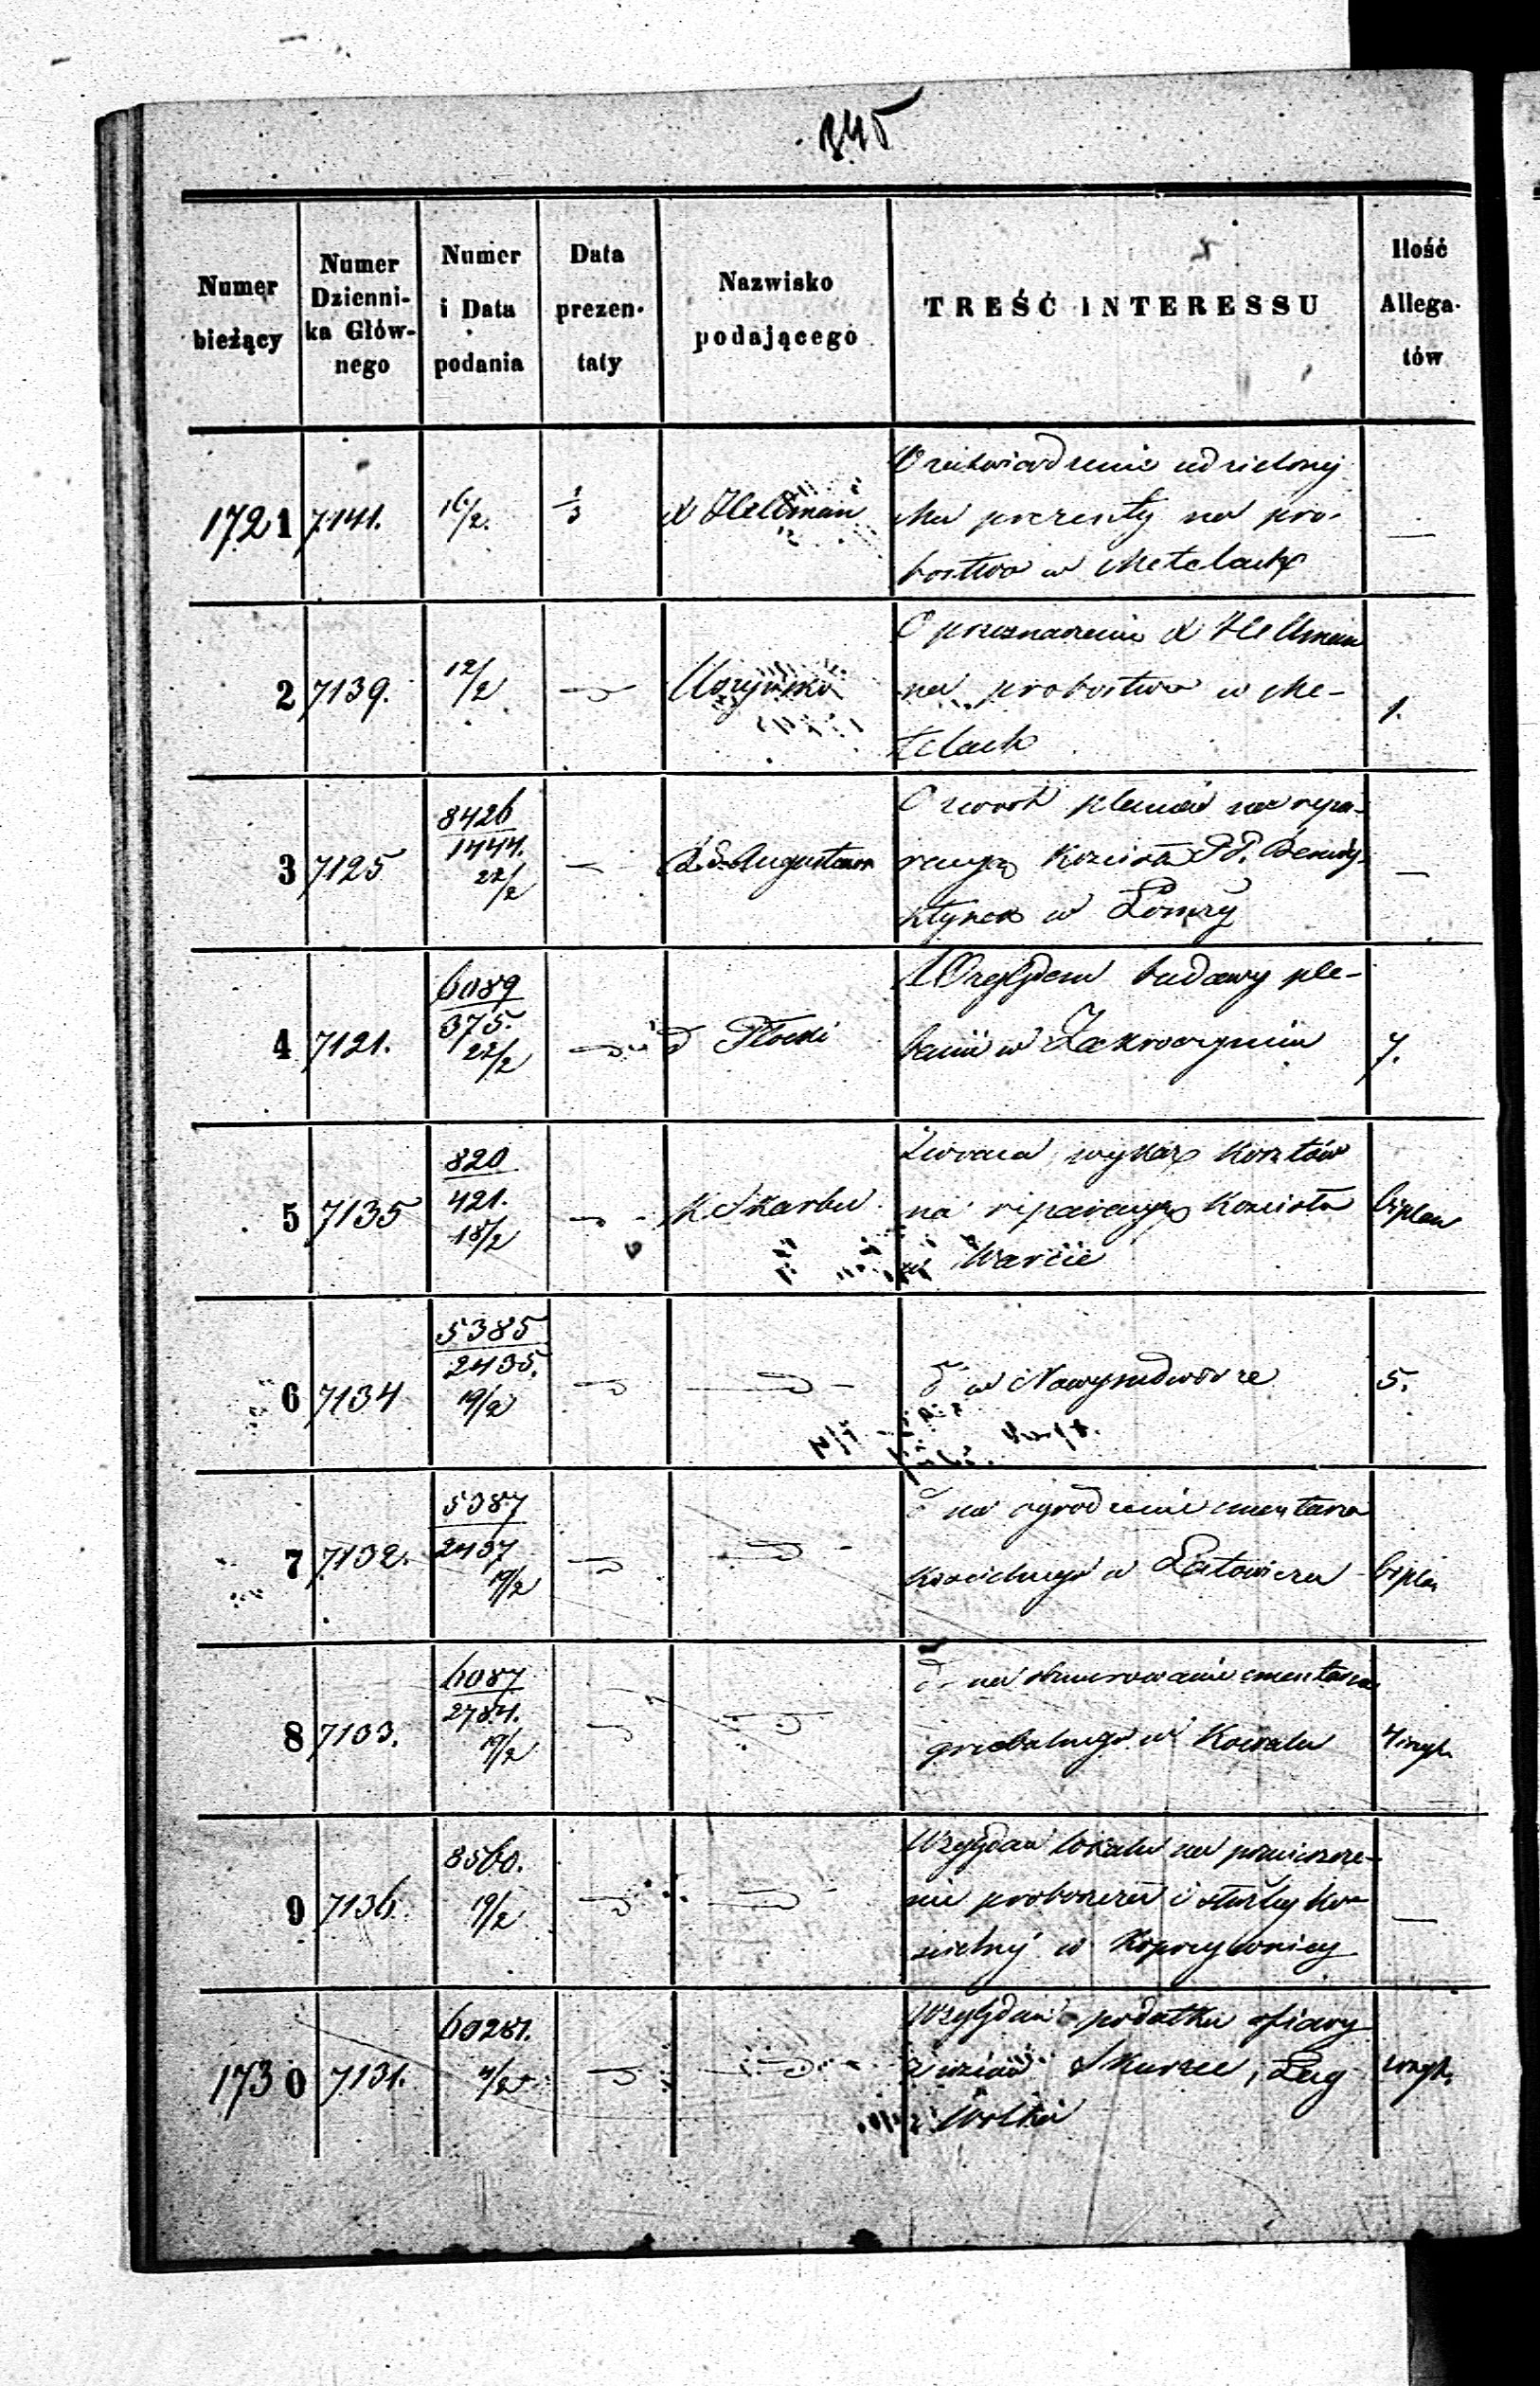 345
Numer bieżący
Numer Dzienni-ka Głów-nego
Numer i Data podania
Data prezen-taty
Nazwisko podającego
TREŚĆ INTERESSU
Ilość Allega-tów
1721 7141. 16/2. 1/3 X Hellman
udzielonej
Mu prezenty na pro-
bostwo w Metelach —
2 7139. 12/2
O przeznaczeniu X Hellman
na probostwo w Me-
telach 1.
3 7125 8426 1444. 22/2 — Augustow
O zwrot planów na repa-
racyą Kościoła PP. Benedy-
ktynek w Łomży —
4 7121. 6089 375. 22/2 d Płocki
Względem budowy ple-
banii w Zakroczymiu 7.
5 7135 820 421. 18/2 K Skarbu
Zwraca wykaz kosztów
na reparacyą Kościoła
w Warcie
6 7134 5385 2435. 19/2
d w Nowymdworze 5.
7 7132. 5387 2437 19/2
d na ogrodzenie cmentarza
kościelnego w Latowiczu
8 7133. 6087 2784. 19/2
d na obmurowanie cmentarza
grzebalnego w Kowalu
9 7136. 8560. 19/2
Względem lokalu na pomieszcze-
nie proboszcza i służby ko-
ścielnej w Koprzywnicy —
1730 7131.
Względem podatku ofiary
Skurzec, Ług
i Wólka